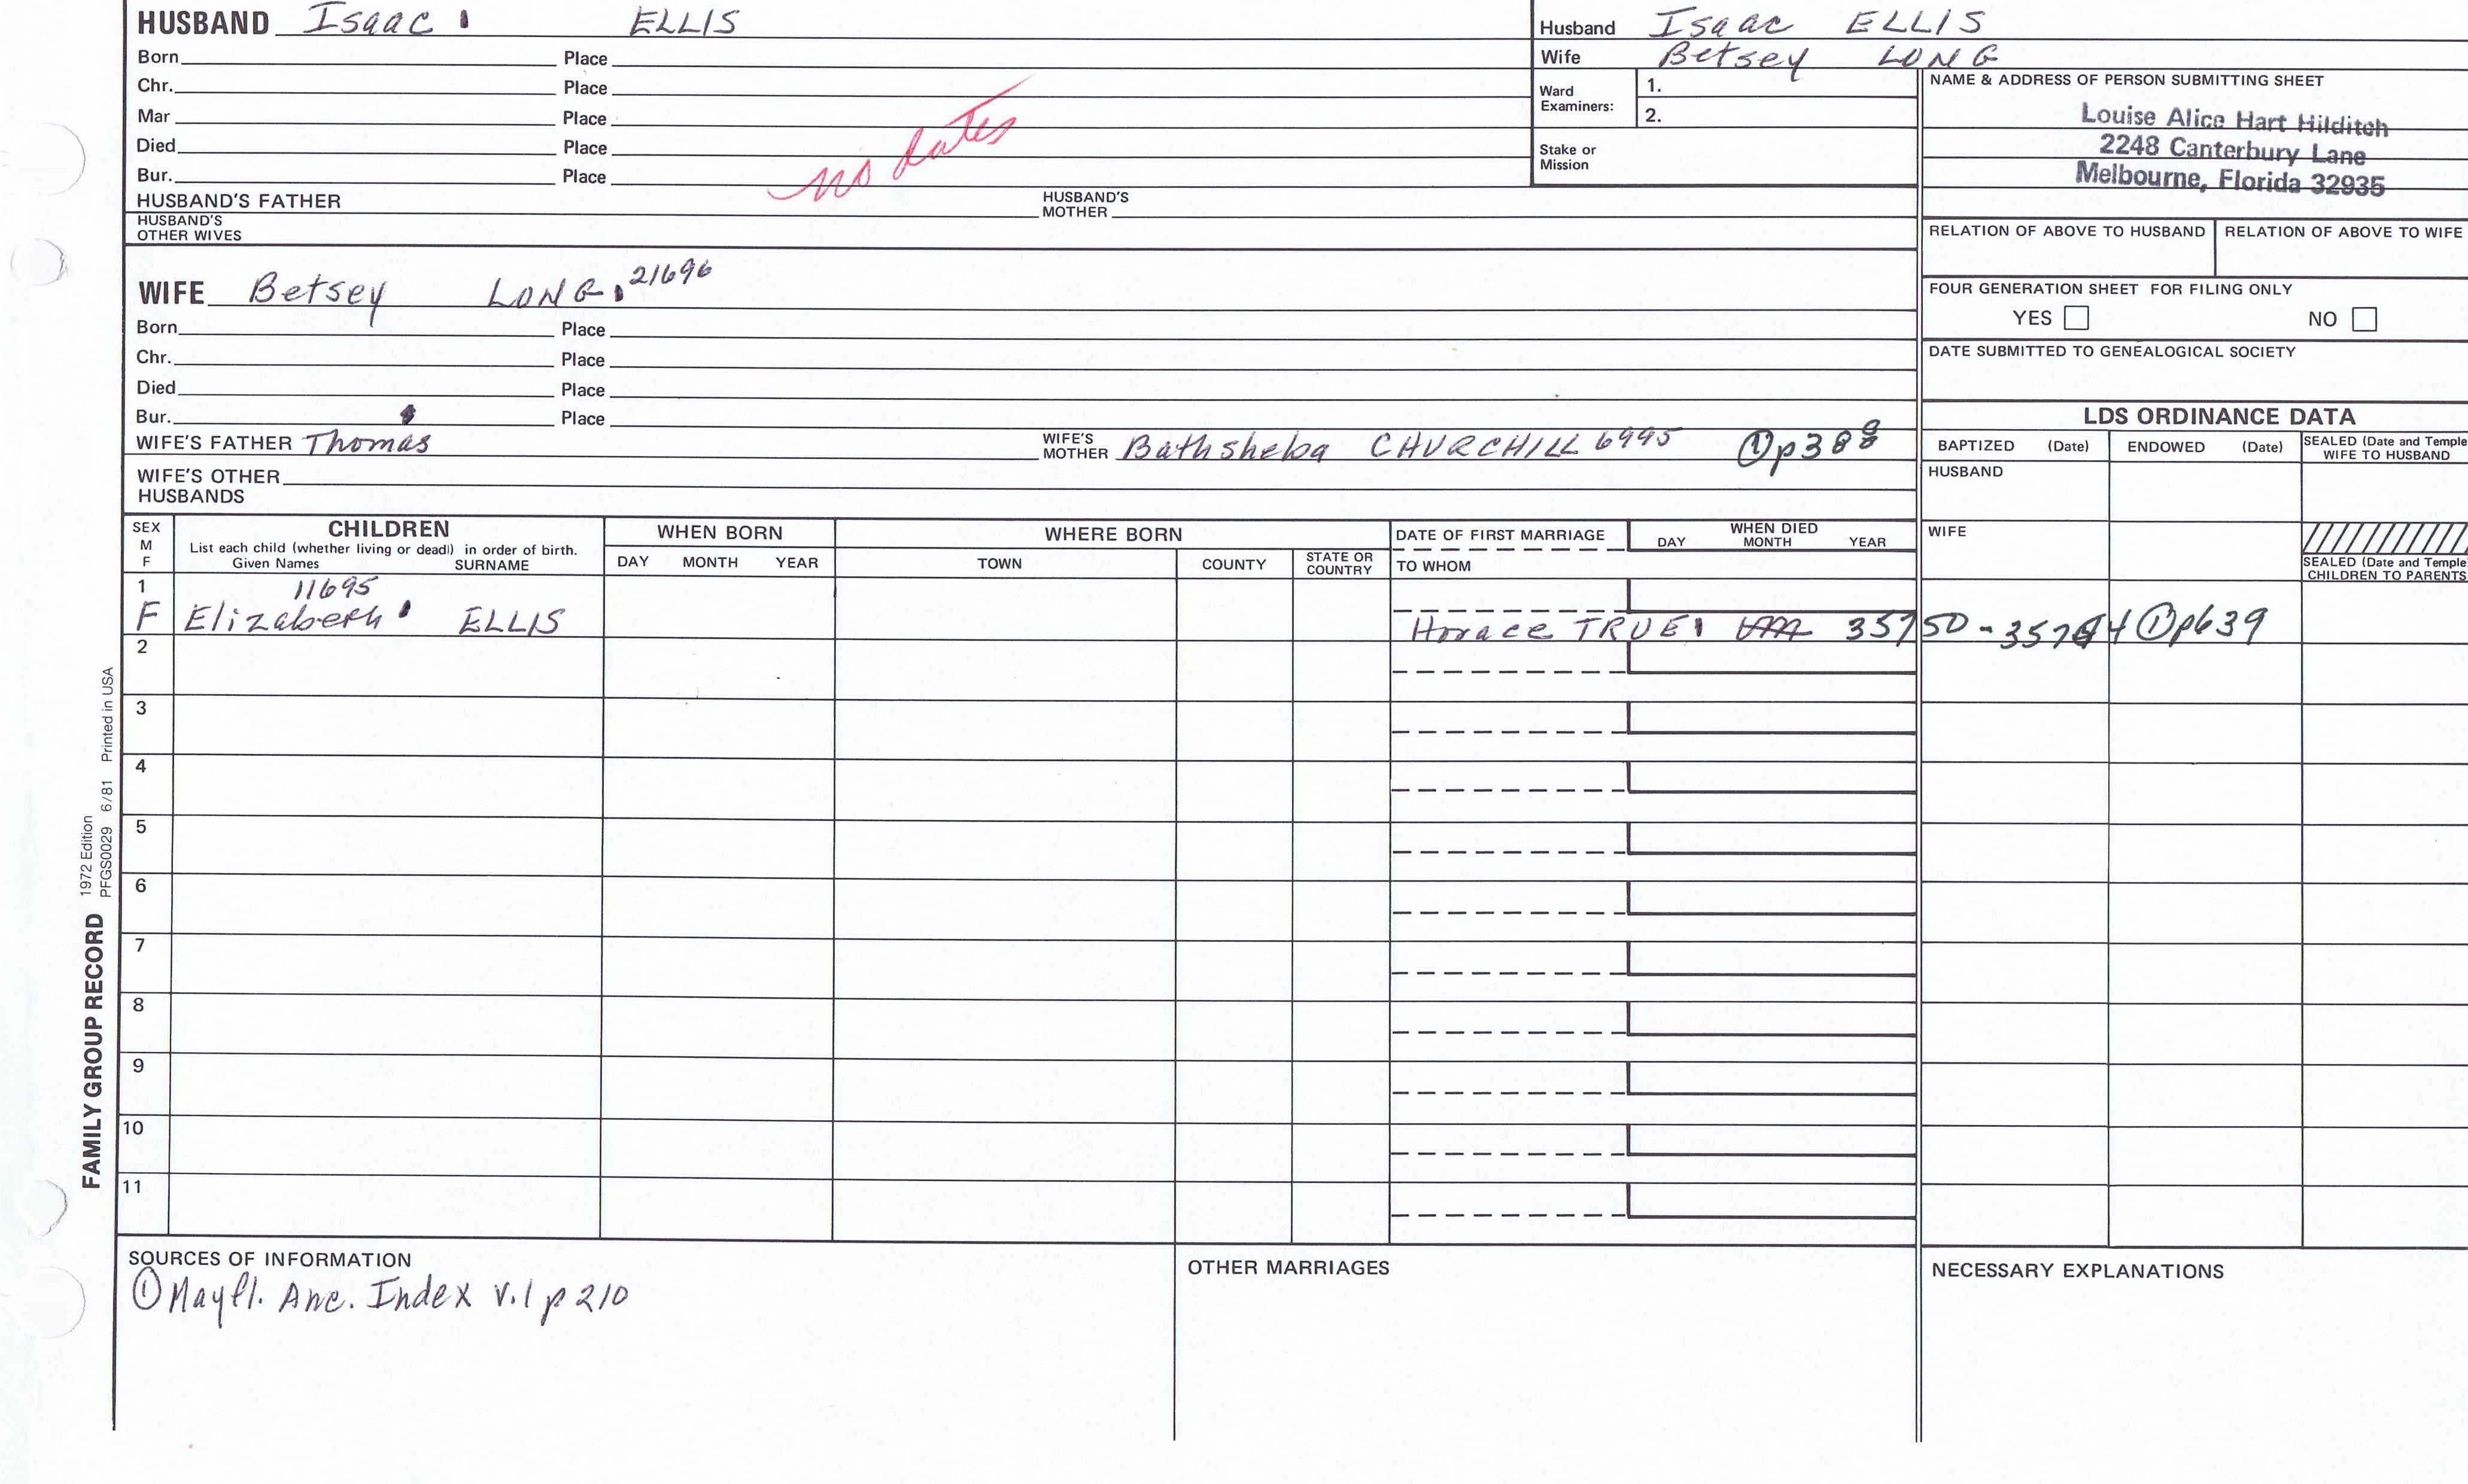 HUSBAND Isaac ELLIS
Born Place
Chr. Place
Mar Place
Died Place
Bur. Place
no dates
HUSBAND'S FATHER HUSBAND'S MOTHER
HUSBAND'S OTHER WIVES
WIFE Betsey LONG 21696
Born Place
Chr. Place
Died Place
Bur. Place
WIFE'S FATHER Thomas WIFE'S MOTHER Bathsheba CHURCHILL 6995 ①p388
WIFE'S OTHER HUSBANDS
Husband Isaac ELLIS
Wife Betsey LONG
Ward Examiners: 1.
2.
Stake or Mission
NAME & ADDRESS OF PERSON SUBMITTING SHEET
Louise Alice Hart Hilditch
2248 Canterbury Lane
Melbourne, Florida 32935
RELATION OF ABOVE TO HUSBAND RELATION OF ABOVE TO WIFE
FOUR GENERATION SHEET FOR FILING ONLY
YES NO
DATE SUBMITTED TO GENEALOGICAL SOCIETY
LDS ORDINANCE DATA
BAPTIZED (Date) ENDOWED (Date) SEALED (Date and Temple WIFE TO HUSBAND
HUSBAND
WIFE
SEALED (Date and Temple CHILDREN TO PARENTS
SEX M F
CHILDREN
List each child (whether living or dead) in order of birth.
Given Names SURNAME
WHEN BORN
DAY MONTH YEAR
WHERE BORN
TOWN COUNTY STATE OR COUNTRY
DATE OF FIRST MARRIAGE
TO WHOM
WHEN DIED
DAY MONTH YEAR
1 11695
F Elizabeth ELLIS Horace TRUE 35750-35764 ①p639
2
3
4
5
6
7
8
9
10
11
SOURCES OF INFORMATION
①Mayfl. Anc. Index v.1 p 210
OTHER MARRIAGES
NECESSARY EXPLANATIONS
FAMILY GROUP RECORD
1972 Edition
PFGS0029 6/81 Printed in USA